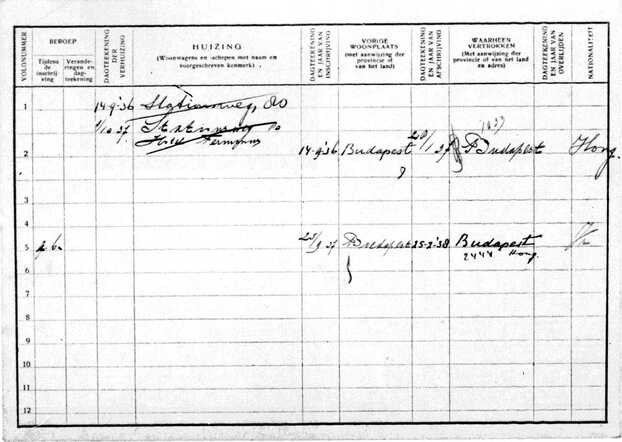 VOLGNUMMER
BEROEP
Tijdens de inschrijving
Veranderingen en dagteekening
DAGTEEKENING DER VERHUIZING
HUIZING
(Woonwagens en schepen met naam en voorgeschreven kenmerk).
DAGTEEKENING EN JAAR VAN INSCHRIJVING
VORIGE WOONPLAATS
(met aanwijzing der provincie of van het land)
DAGTEEKENING EN JAAR VAN AFSCHRIJVING
WAARHEEN VERTROKKEN
(Met aanwijzing der provincie of van het land en adres)
DAGTEEKENING EN JAAR VAN OVERLIJDEN
NATIONALITEIT
1
14-9-'36 Stationsweg, 80
1/10 37
2
14-9-'36 Budapest 20/1 37 Budapest Hong.
3
4
5
9 37 25-3-'38 Budapest
2444 Hong.
6
7
8
9
10
11
12